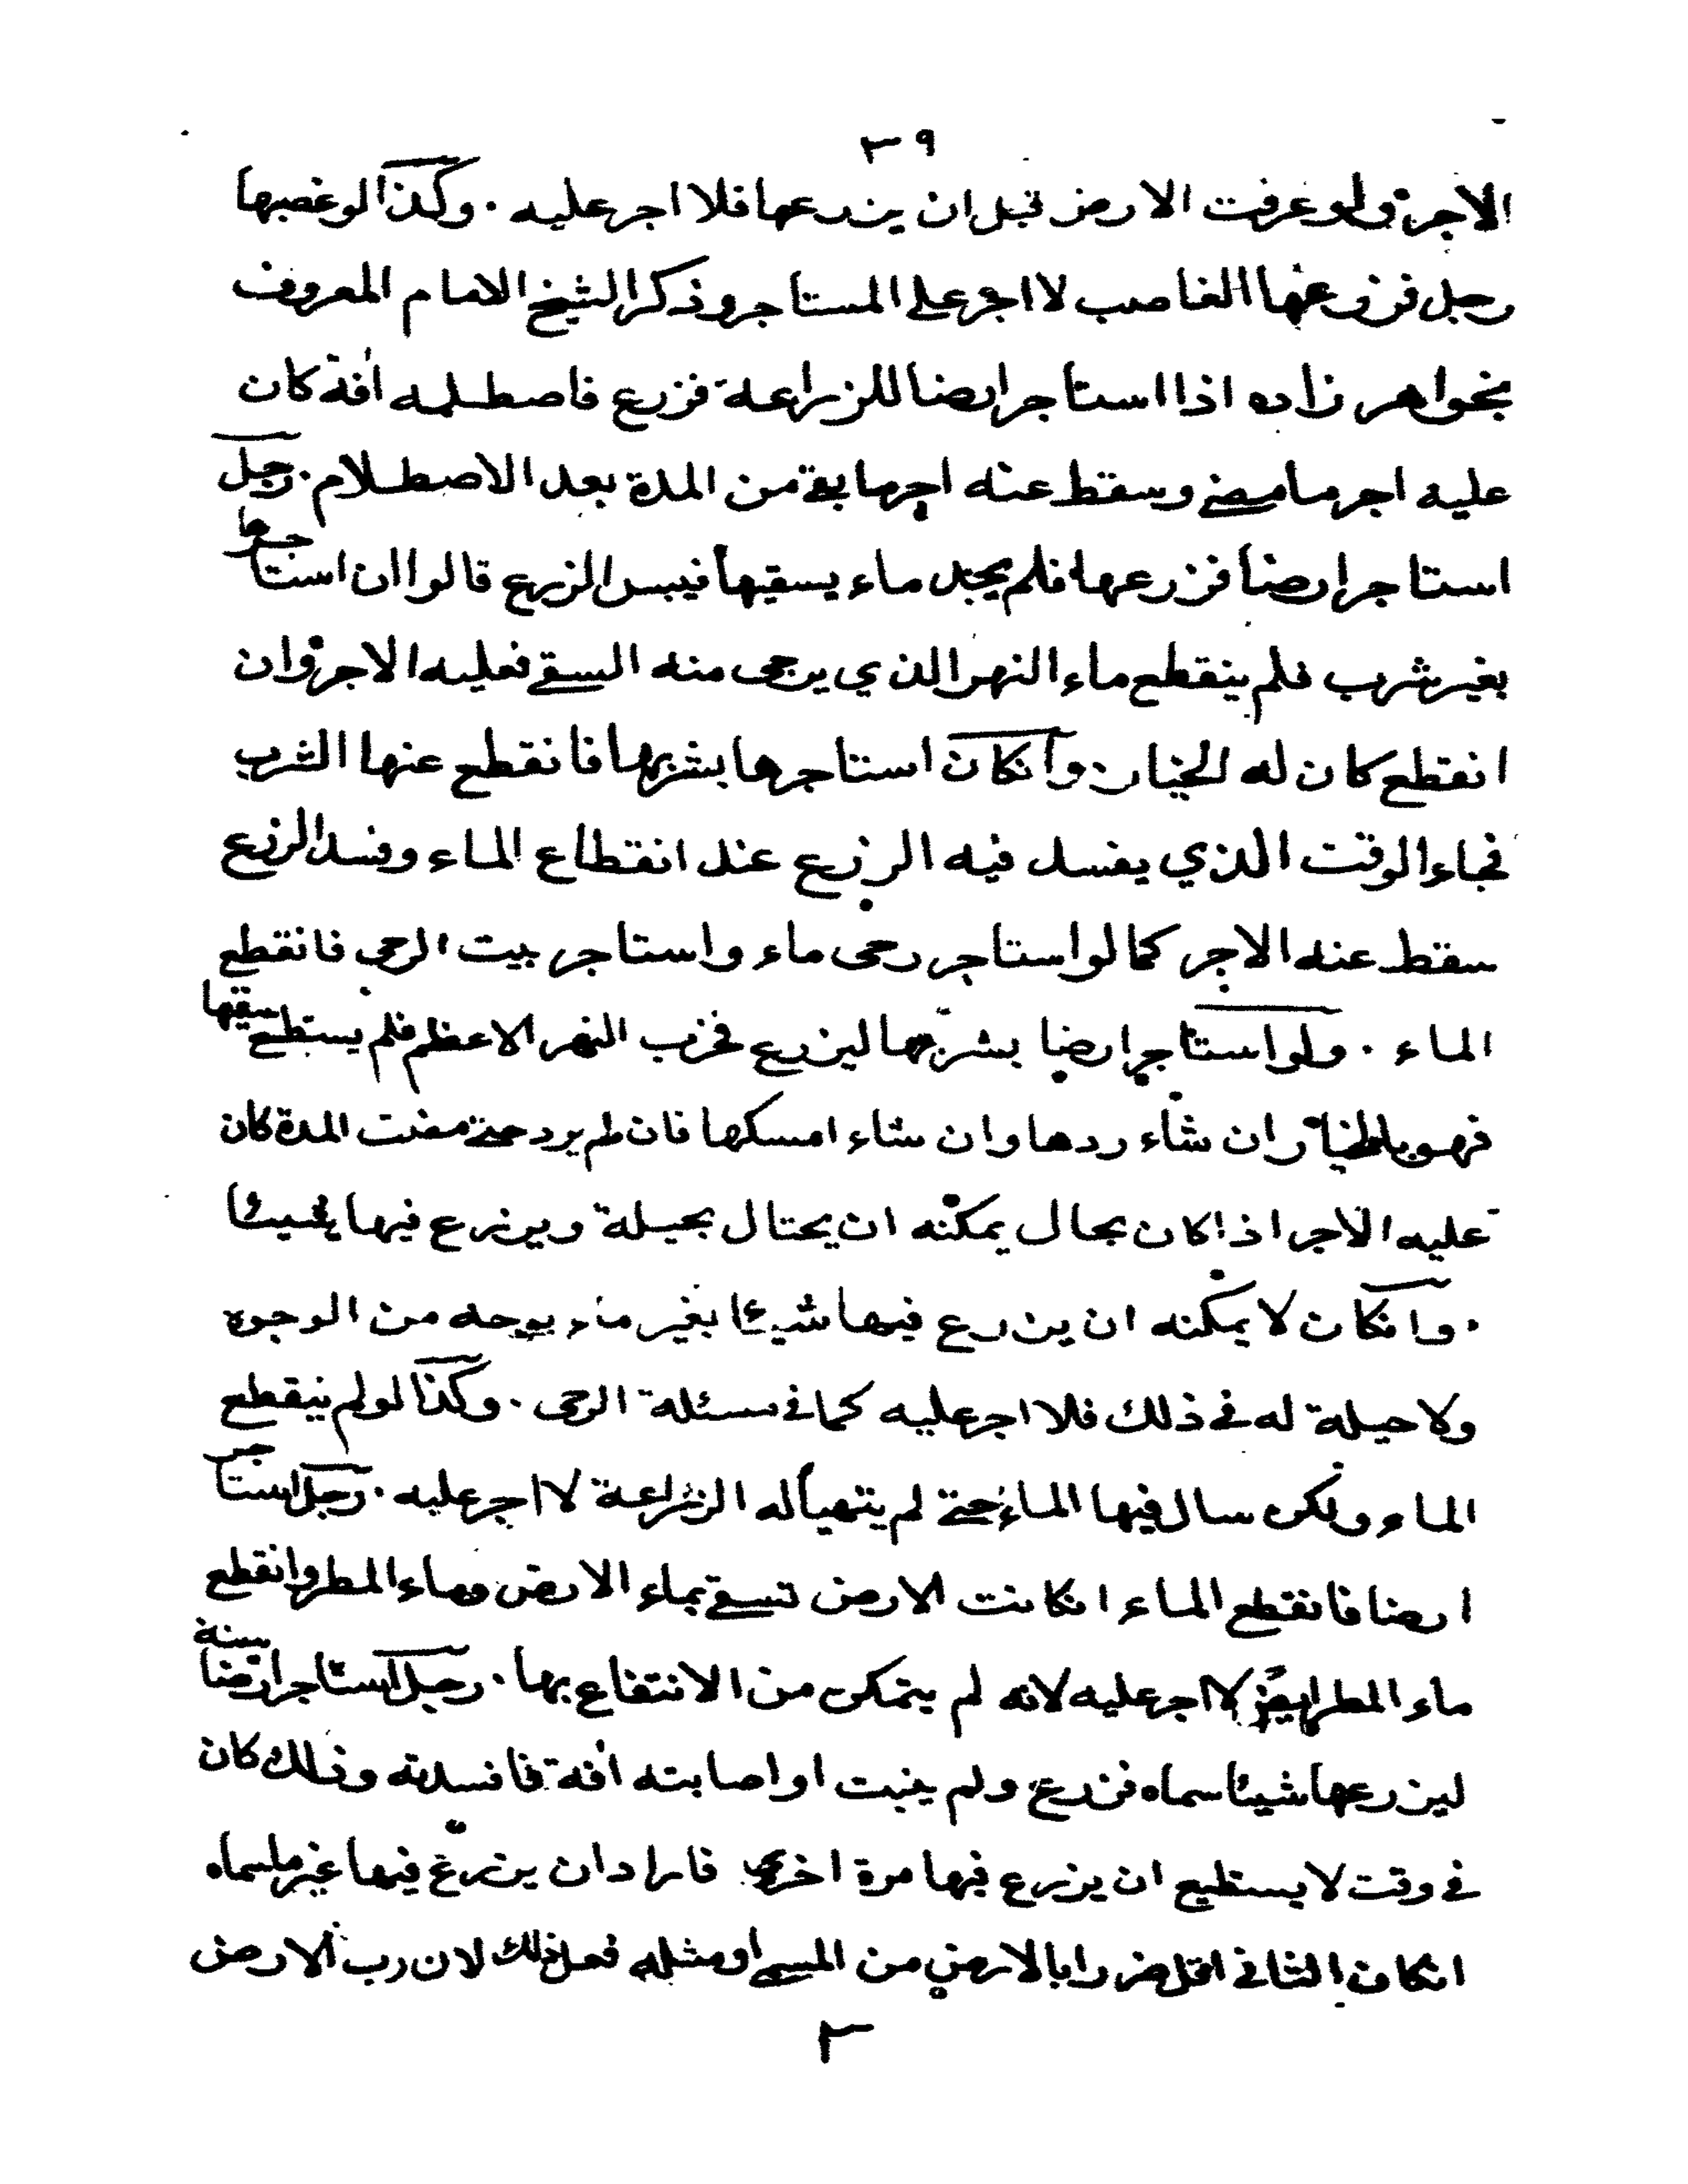 ٣٩
الاجرة ولو غرقت الارض قبل ان يزرعها فلا اجر عليه . وكذا لو غصبها
رجل فزرعها الغاصب لا اجر على المستاجر وذكر الشيخ الامام المعروف
بخواهر زاده اذا استاجر ارضا للزراعة فزرع فاصطلمه افة كان
عليه اجر ما مضى وسقط عنه اجر ما بقى من المدة بعد الاصطلام . رجل
استاجر ارضا فزرعها فلم يجد ماء يسقيها فيبس الزرع قالوا ان استاجرها
بغير شرب فلم ينقطع ماء النهر الذي يرجى منه السقى فعليه الاجر وان
انقطع كان له الخيار . وانكان استاجرها بشربها فانقطع عنها الشرب
فجاء الوقت الذي يفسد فيه الزرع عند انقطاع الماء وفسد الزرع
سقط عنه الاجر كما لو استاجر رحى ماء واستاجر بيت الرحى فانقطع
الماء . ولو استاجر ارضا بشربها ليزرع فخرب النهر الاعظم فلم يستطع سقيها
فهو بالخيار ان شاء ردها وان شاء امسكها فان لم يرد حتى مضت المدة كان
عليه الاجر اذا كان بحال يمكنه ان يحتال بحيلة ويزرع فيها شيئا
. وانكان لا يمكنه ان يزرع فيها شيئا بغير ماء بوجه من الوجوه
ولا حيلة له فى ذلك فلا اجر عليه كما فى مسئلة الرحى . وكذا لو لم ينقطع
الماء ولكن سال فيها الماء حتى لم يتهيأ له الزراعة لا اجر عليه . رجل استاجر
ارضا فانقطع الماء انكانت الارض تسقى بماء الارض وماء المطر وانقطع
ماء المطر ايضا لا اجر عليه لانه لم يتمكن من الانتفاع بها . رجل استاجر ارضا سنة
ليزرعها شيئا سماه فزرع ولم ينبت او اصابته افة فافسدته وذلك كان
فى وقت لا يستطيع ان يزرع فيها مرة اخرى فاراد ان يزرع فيها غير ما سماه
انكان الثانى اقل ضررا بالارض من المسمى او مثله فعل ذلك لان رب الارض
٢